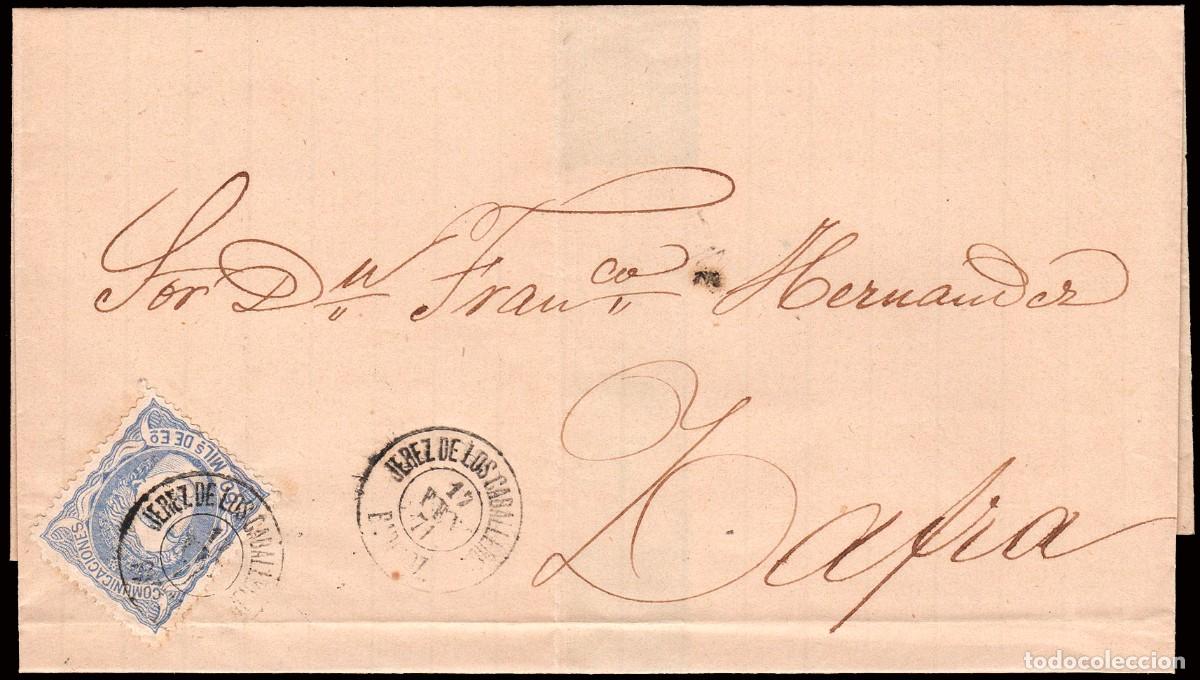 Sor Dn Franco Hernandez
Zafra
COMUNICACIONES
MILS DE EO
JEREZ DE LOS CABALLE
JEREZ DE LOS CABALLERO
17
71
todocoleccion